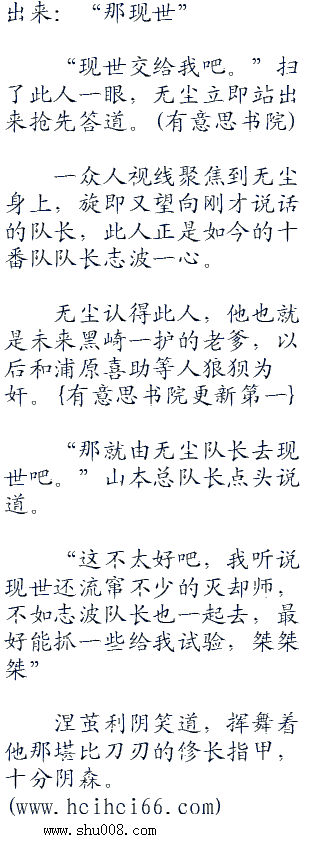 出来：“那现世”
“现世交给我吧。”扫
了此人一眼，无尘立即站出
来抢先答道。(有意思书院)
一众人视线聚焦到无尘
身上，旋即又望向刚才说话
的队长，此人正是如今的十
番队队长志波一心。
无尘认得此人，他也就
是未来黑崎一护的老爹，以
后和浦原喜助等人狼狈为
奸。{有意思书院更新第一}
“那就由无尘队长去现
世吧。”山本总队长点头说
道。
“这不太好吧，我听说
现世还流窜不少的灭却师，
不如志波队长也一起去，最
好能抓一些给我试验，桀桀
桀”
涅茧利阴笑道，挥舞着
他那堪比刀刃的修长指甲，
十分阴森。
(www.hcihci66.com)
www.shu008.com